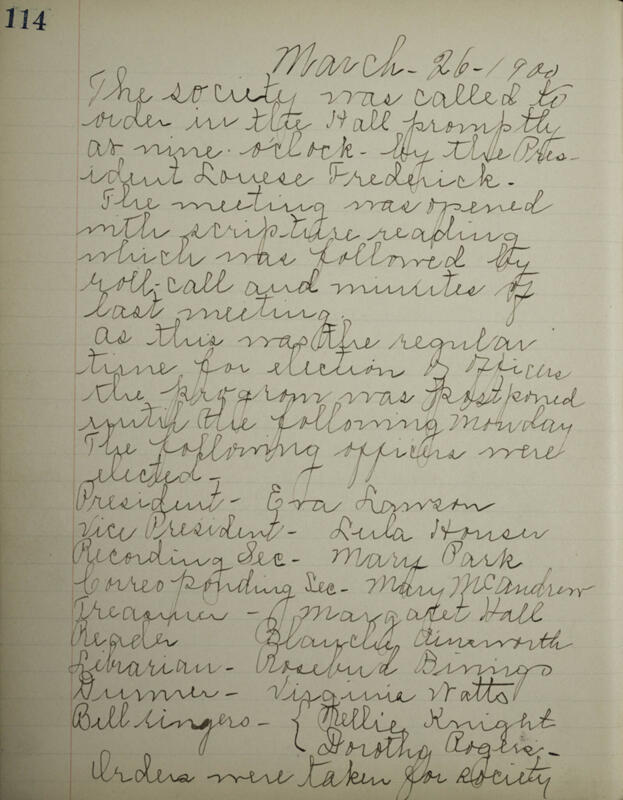 114
March - 26 - 1900
The society was called to
order in the Hall promptly
at nine o'clock - by the Pres-
ident Louese Frederick.
The meeting was opened
with scripture reading
which was followed by
roll-call and minutes of
last meeting.
As this was the regular
time for election of officers
the program was postponed
until the following Monday
The following officers were
elected -
President - Eva Lawson
Vice President - Lula Houser
Recording Sec - Mary Park
Corresponding Sec - Mary McAndrew
Treasurer - Margaret Hall
Reader Blanche Ainsworth
Librarian - Rosebud Binings
Dunner - Virginia Watts
Bell ringers - { Nellie Knight
Dorothy Rogers -
Orders were taken for society